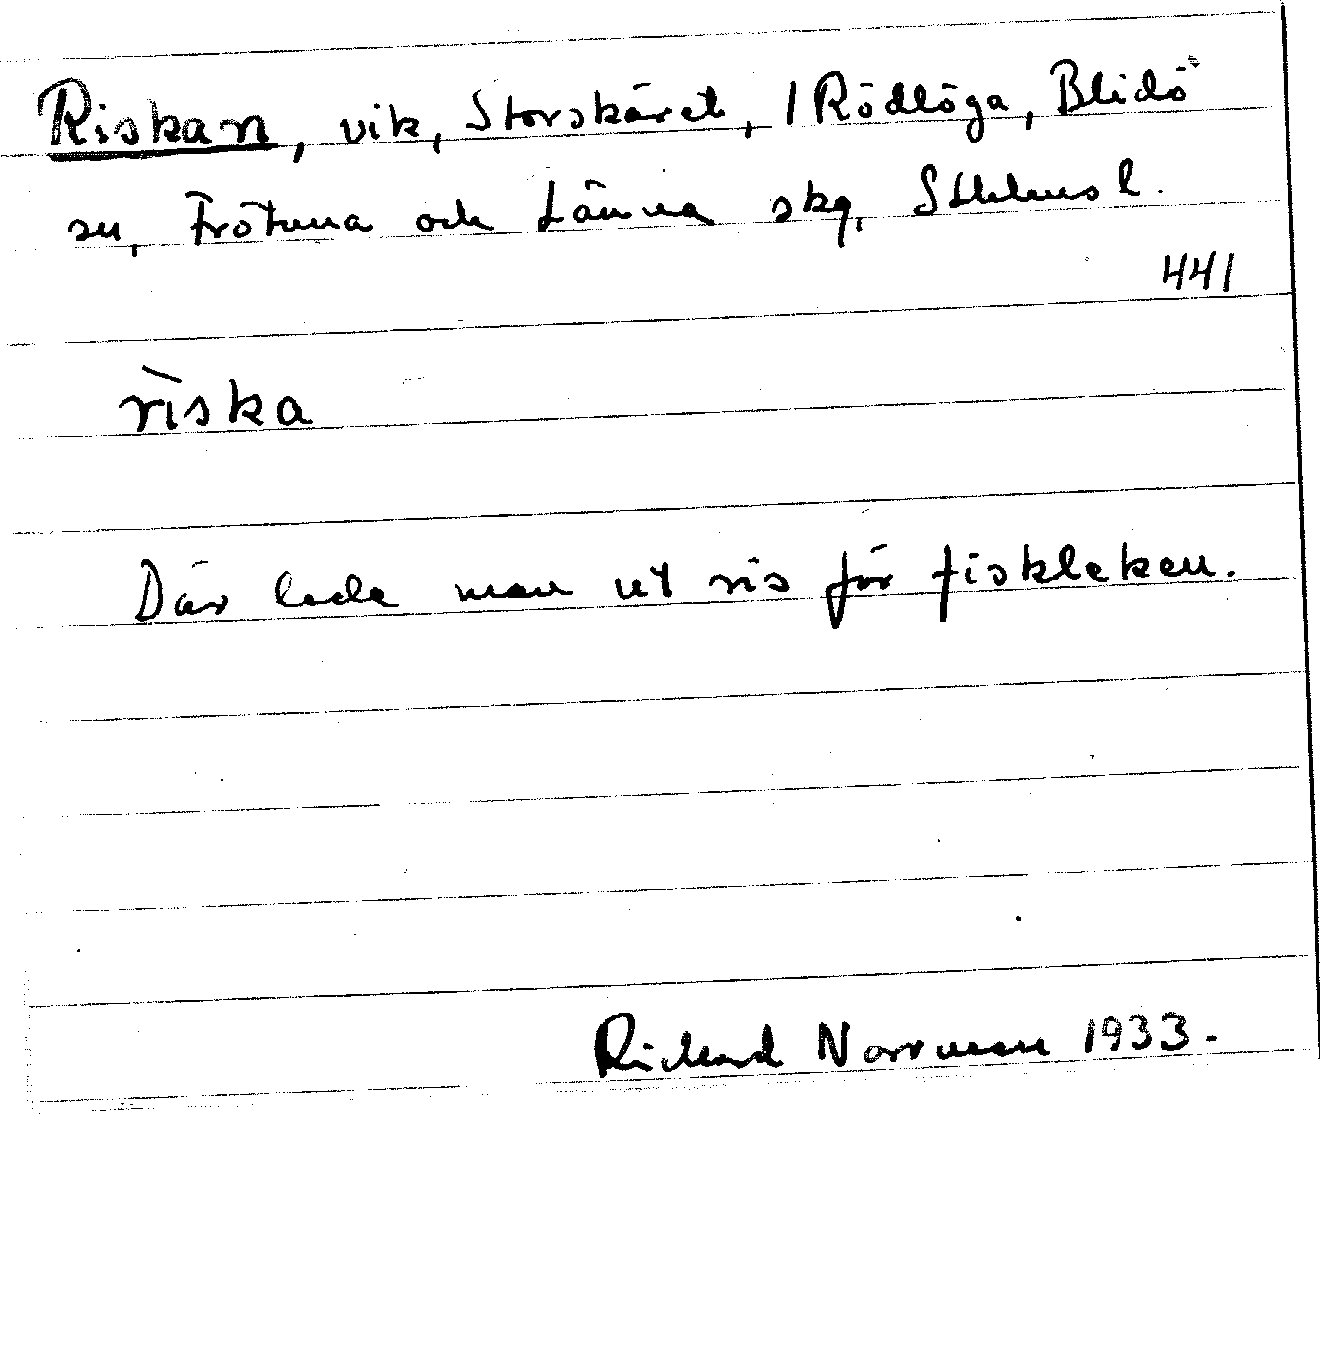 Riskan, vik, Storskäret, 1 Rödlöga, Blidö
sn, Frötuna och Länna skg, Sthlms l.
441
rìska
Där lade man ut ris för fiskleken.
Rickard Norrman 1933.